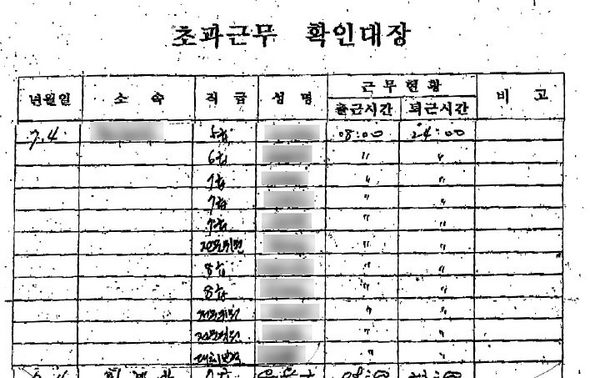 초과근무 확인대장
년월일 소속 직급 성명 근무현황 비고
출근시간 퇴근시간
7.4 5급 08:00 24:00
6급 〃 〃
7급 〃 〃
7급 〃 〃
7급 〃 〃
〃 〃
8급 〃 〃
8급 〃 〃
〃 〃
〃 〃
〃 〃